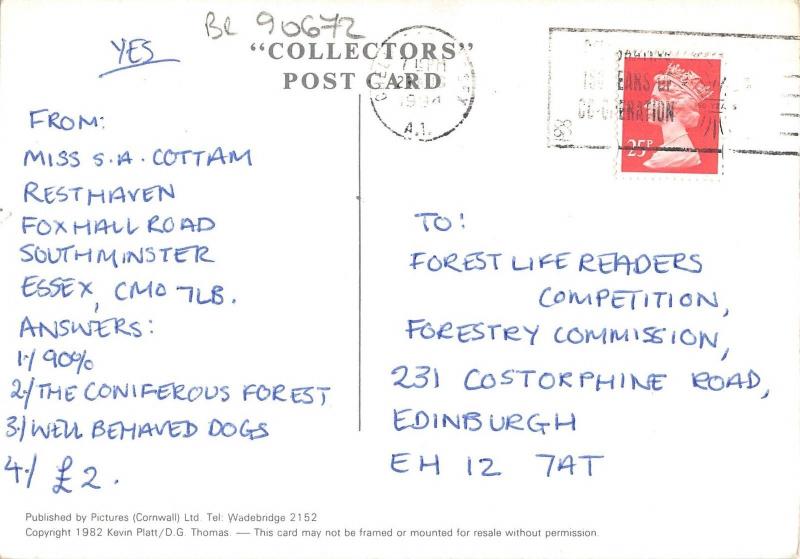 BR 90672
YES
"COLLECTORS"
POST CARD
1994
A.I.
YEARS OF
CO-OPERATION
25P
FROM:
MISS S.A. COTTAM
RESTHAVEN
FOXHALL ROAD
SOUTHMINSTER
ESSEX, CM0 7LB.
ANSWERS:
1/ 90%
2/ THE CONIFEROUS FOREST
3/ WELL BEHAVED DOGS
4/ £2.
TO:
FOREST LIFE READERS
COMPETITION,
FORESTRY COMMISSION,
231 COSTORPHINE ROAD,
EDINBURGH
EH 12 7AT
Published by Pictures (Cornwall) Ltd. Tel: Wadebridge 2152
Copyright 1982 Kevin Platt/D.G. Thomas. — This card may not be framed or mounted for resale without permission.